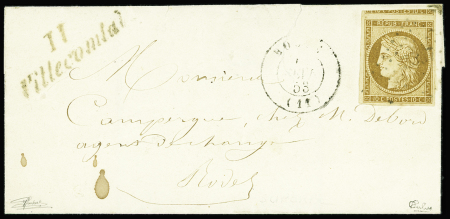 11
Villecomtal
53
(11)
REPUB. FRANC.
Monsieur
Campergue, chez M. Debord
agent de change
Rodez